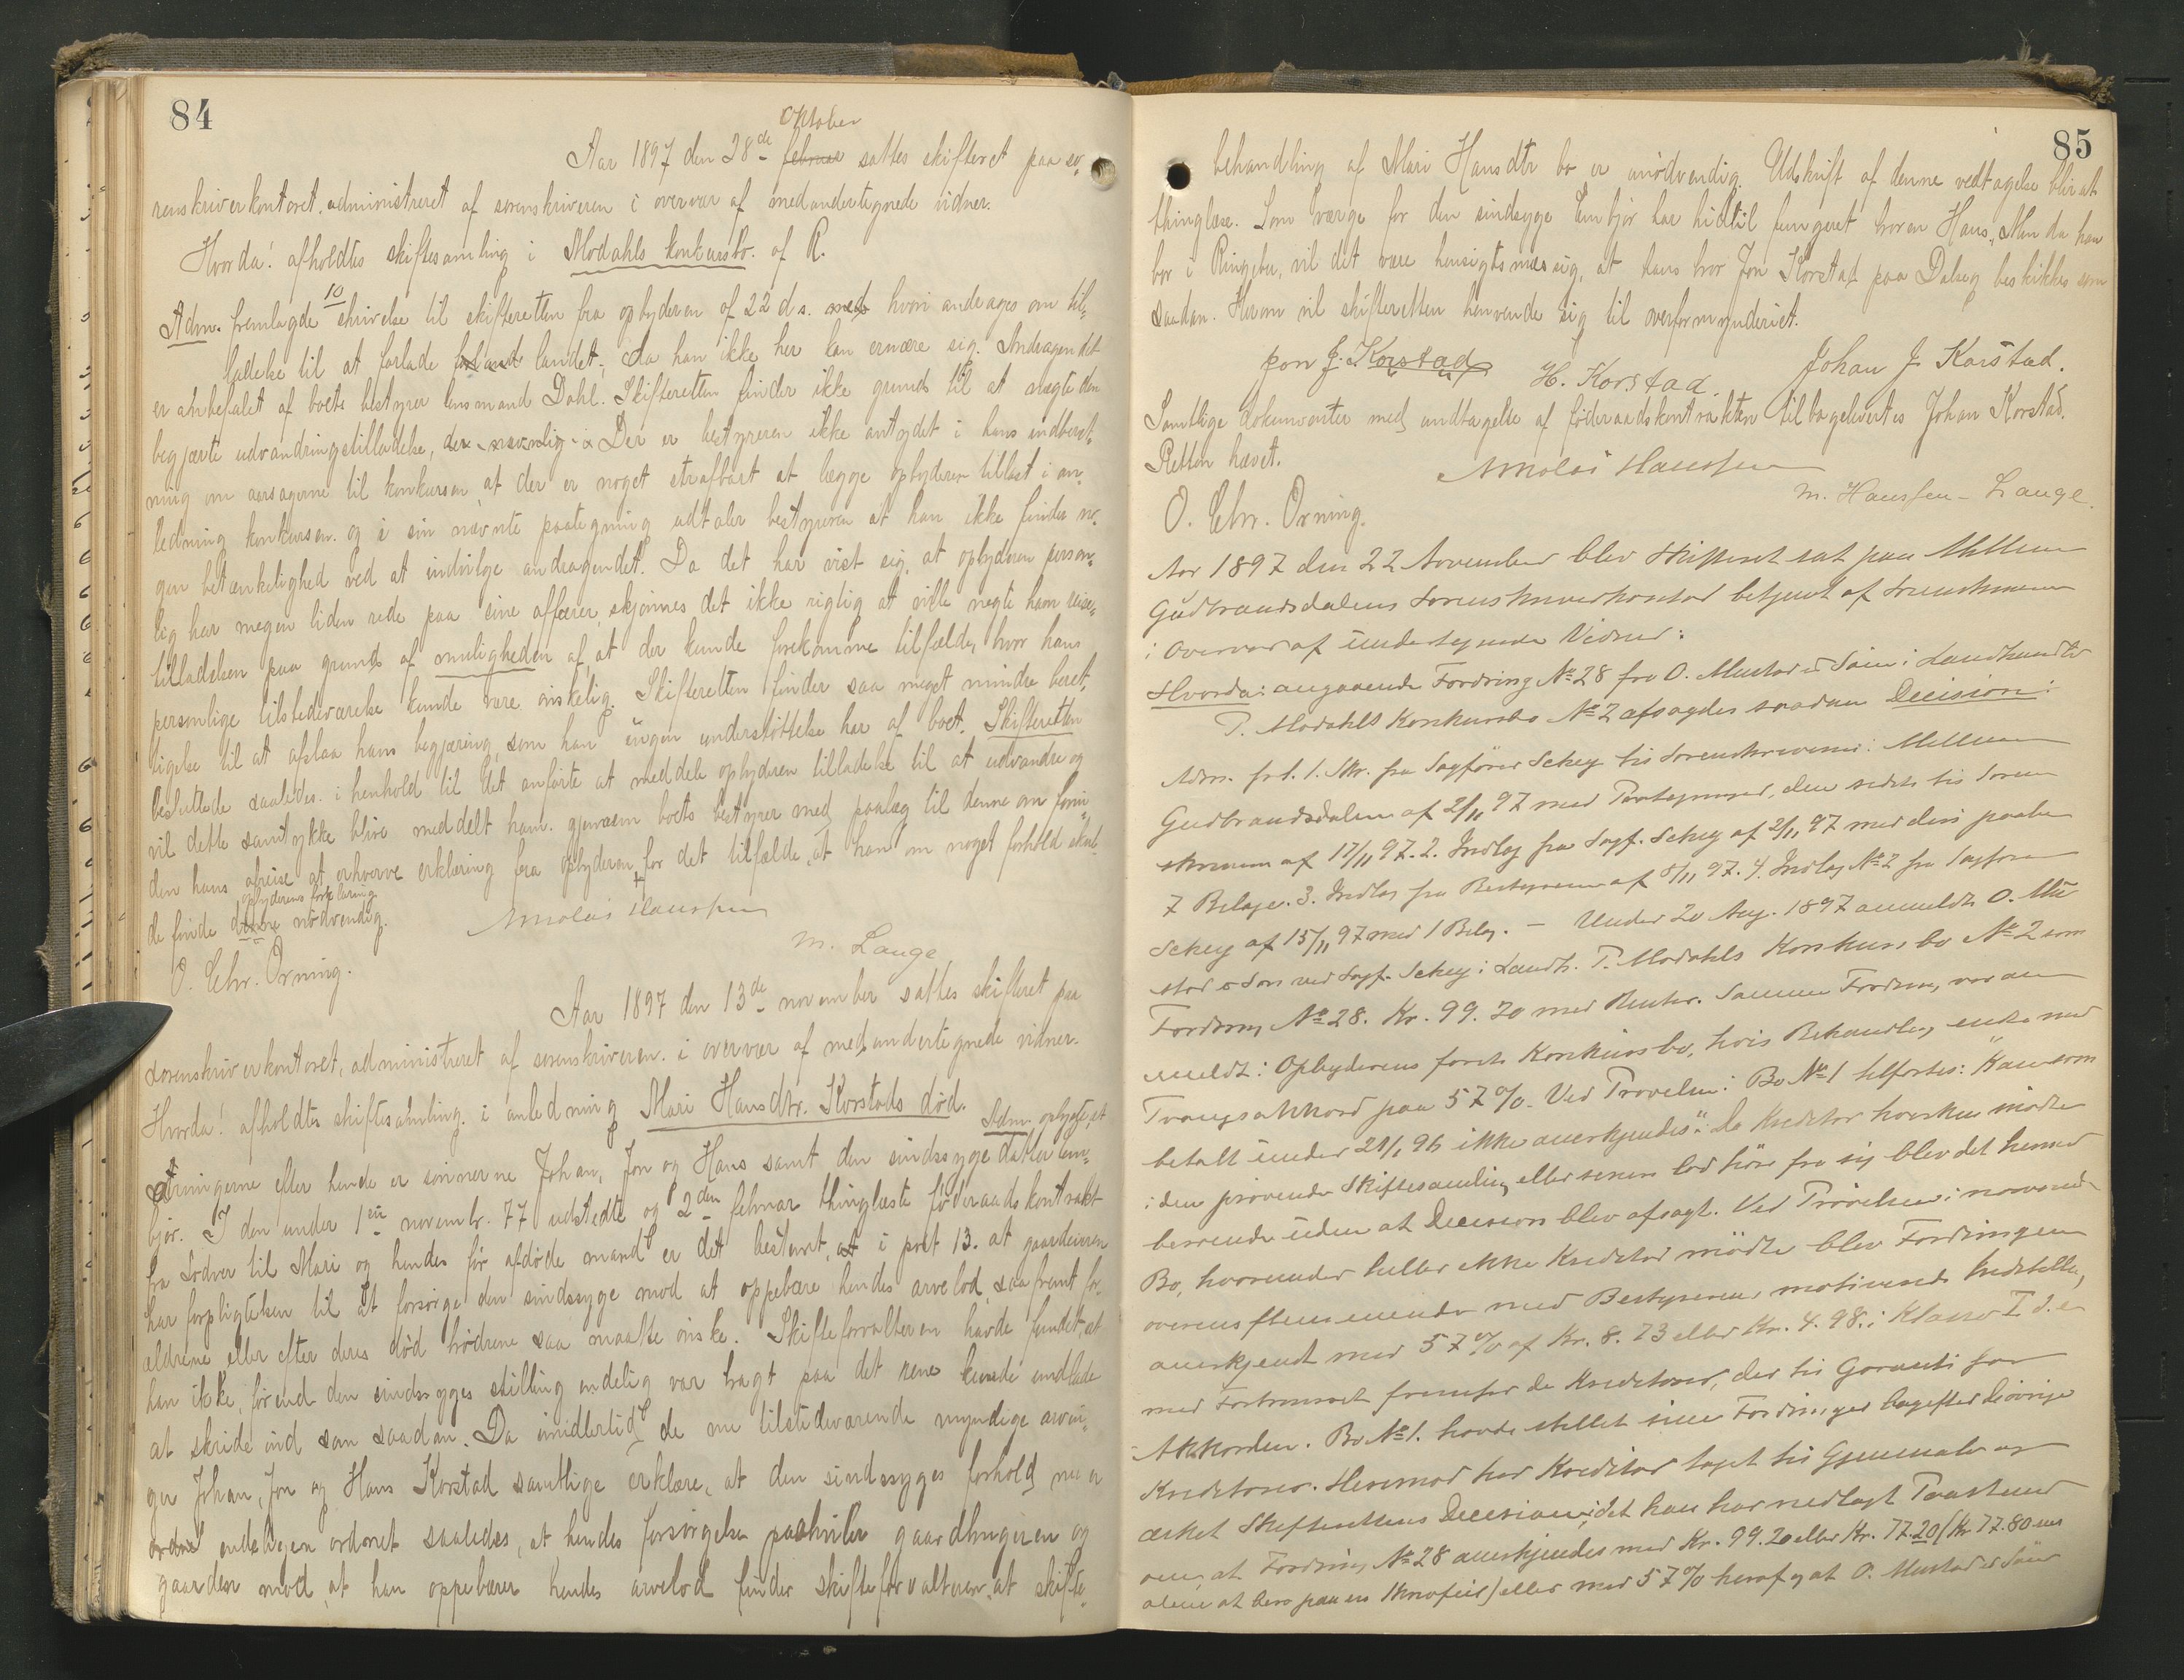 84
Oktober
Aar 1897 den 28de februar sattes skifteret paa so-
renskriverkontoret, administreret af sorenskriveren i overvær af medundertegnede vidner.
Hvorda: afholdtes skiftesamling i Modahls konkursbo. af R.
10
Adm. fremlagde skrivelse til skifteretten fra opbyderen af 22 ds. hvori andrages om til-
ladelse til at forlade landet, da han ikke her kan ernære sig. Andragendet
er anbefalet af boets bestyrer lensmand Dahl. Skifteretten finder ikke grund til at nægte den
begjærte udvandringstilladelse, der nævnlig Der er bestyreren ikke antydet i hans indberet-
ning om aarsagerne til konkursen at der er noget strafbart at lægge opbyderen tillast i an-
ledning konkursen. og i sin nævnte paategning udtaler bestyreren at han ikke finder no-
gen betænkelighed ved at indvilge andragendet. Da det har vist sig, at opbyderen person-
lig har megen liden rede paa sine affærer, skjønnes det ikke rigtig at ville negte ham reise-
tilladelsen paa grund af muligheden af, at der kunde forekomme tilfælde, hvor hans
personlige tilstedeværelse kunde være ønskelig. Skifteretten finder saa meget mindre beret-
tigelse til at afslaa hans begjæring, som han ingen understøttelse har af boet. Skifteretten
besluttede saaledes. i henhold til det anførte at meddele opbyderen tilladelse til at udvandre og
vil dette samtykke blive meddelt ham. gjennem boets bestyrer med paalæg til denne om forin-
den hans afreise at erhverve erklæring fra opbyderen for det tilfælde, at han om noget forhold skul-
opbyderens forklaring
de finde denne nødvendig.
Nikolai Hanssen
M. Lange
O. Chr. Orning.
Aar 1897 den 13de november sattes skifteret paa
sorenskriverkontoret, administreret af sorenskriveren. i overvær af medundertegnede vidner.
Hvorda: afholdtes skiftesamling. i anledning Mari Hansdtr. Korstads død.
Adm. oplyste, at
arvingerne efter hende er sønnerne Johan, Jon og Hans samt den sindssyge datter Em-
bjør. I den under 1ste novembr. 77 udstedte og 2den februar thinglæste føderaadskontrakt
fra Lodver til Mari og hendes før afdøde mand er det bestemt, at i post 13. at gaardeieren
har forpligtelsen til at forsørge den sindssyge mod at oppebære hendes arvelod, saafremt for-
ældrene eller efter deres død brødrene saa maatte ønske. Skifteforvalteren havde fundet, at
han ikke, førend den sindssyges stilling endelig var bragt paa det rene kunde undlade
at skride ind som saadan. Da imidlertid de nu tilstedeværende myndige arvin-
ger Johan, Jon og Hans Korstad samtlige erklære, at den sindssyges forhold nu er
endeligen ordnet saaledes, at hendes forsørgelse paahviler gaardbrugeren og
gaarden mod, at han oppebærer hendes arvelod finder skifteforvalteren at skifte-
85
behandling af Mari Hansdtr bo er unødvendig. Udskrift af denne vedtagelse blir at
thinglæse. Som værge for den sindssyge Embjør har hidtil fungeret broren Hans. Men da han
bor i Ringebu, vil det være hensigtsmæssig, at hans bror Jon Korstad paa Dalseg beskikkes som
saadan. Herom vil skifteretten henvende sig til overformynderiet.
Jon J. Korstad H. Korstad. Johan J. Korstad.
Samtlige dokumenter med undtagelse af føderaadskontrakten tilbageleveredes Johan Korstad.
Retten hævet.
Nikolai Hanssen
M. Hanssen-Lange.
O. Chr. Orning.
Aar 1897 den 22 November blev Skifteret sat paa Mellem
Gudbrandsdalens Sorenskriverkontor betjent af Sorenskriveren
i Overvær af undertegnede Vidner:
Hvorda: angaaende Fordring No 28 fra O. Mustad & Søn i Landhandler
P. Modahls Konkursbo No 2 afsagdes saadan Decision:
Adm. frl. 1. Skr. fra Sagfører Schey til Sorenskriveren i Mellem
Gudbrandsdalen af 2/11 97 med Paategninger, den sidste til Soren-
skriveren af 17/11 97. 2. Indlæg fra Sagf. Schey af 2/11 97 med deri paabe
7 Bilage. 3. Indlæg fra Bestyreren af 5/11 97. 4. Indlæg No 2 fra Sagfører
Schey af 15/11 97 med 1 Bilag. – Under 20 Aug. 1897 anmeldte O. Mu-
stad & Søn ved Sagf. Schey i Landh. P. Modahls Konkursbo No 2 som
Fordring No 28. Kr. 99.20 med Renter. Samme Fordring var an-
meldt i Opbyderens første Konkursbo, hvis Behandling endte med
Tvangsakkord paa 57 %. Ved Prøvelsen i Bo No 1 tilførtes: "Kan som
betalt under 21/1 96 ikke anerkjendes". Da Kreditor hverken mødte
i den prøvende Skiftesamling eller senere lod høre fra sig blev det hermed
beroende uden at Decision blev afsagt. Ved Prøvelsen i nærværende
Bo, hvorunder heller ikke Kreditor mødte blev Fordringen
overensstemmende med Bestyrerens motiverede Indstilling
anerkjendt med 57 % af Kr. 8.73 eller Kr. 4.98. i Klasse I d.e.
med Fortrinsret fremfor de Kreditorer, der til Garanti for
Akkorden i Bo No 1. havde stillet sine Fordringer bagefter de øvrige
Kreditorer. Herimod har Kreditor taget til Gjenmæle og
æsket Skifterettens Decision, idet han har nedlagt Paastand
om, at Fordring No 28 anerkjendes med Kr. 99.20 eller Kr. 77.20 (Kr 77.80
alene at bero paa en Skrivfeil) eller med 57 % heraf og at O. Mustad & Søn